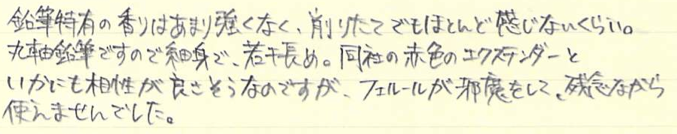 鉛筆特有の香りはあまり強くなく、削りたてでもほとんど感じないくらい。
丸軸鉛筆ですので細身で、若干長め。同社の赤色のエクステンダーと
いかにも相性が良さそうなのですが、フェルールが邪魔をして、残念ながら
使えませんでした。